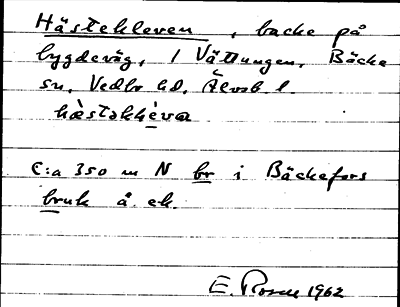 Hästekleven, backe på
bygdeväg, i Vättungen, Bäcke
sn, Vedbo hd, Älvsb. l.
hæ̀stəkhèva
C:a 350 m N br i Bäckefors
bruk å ek.
E. Rosell 1962